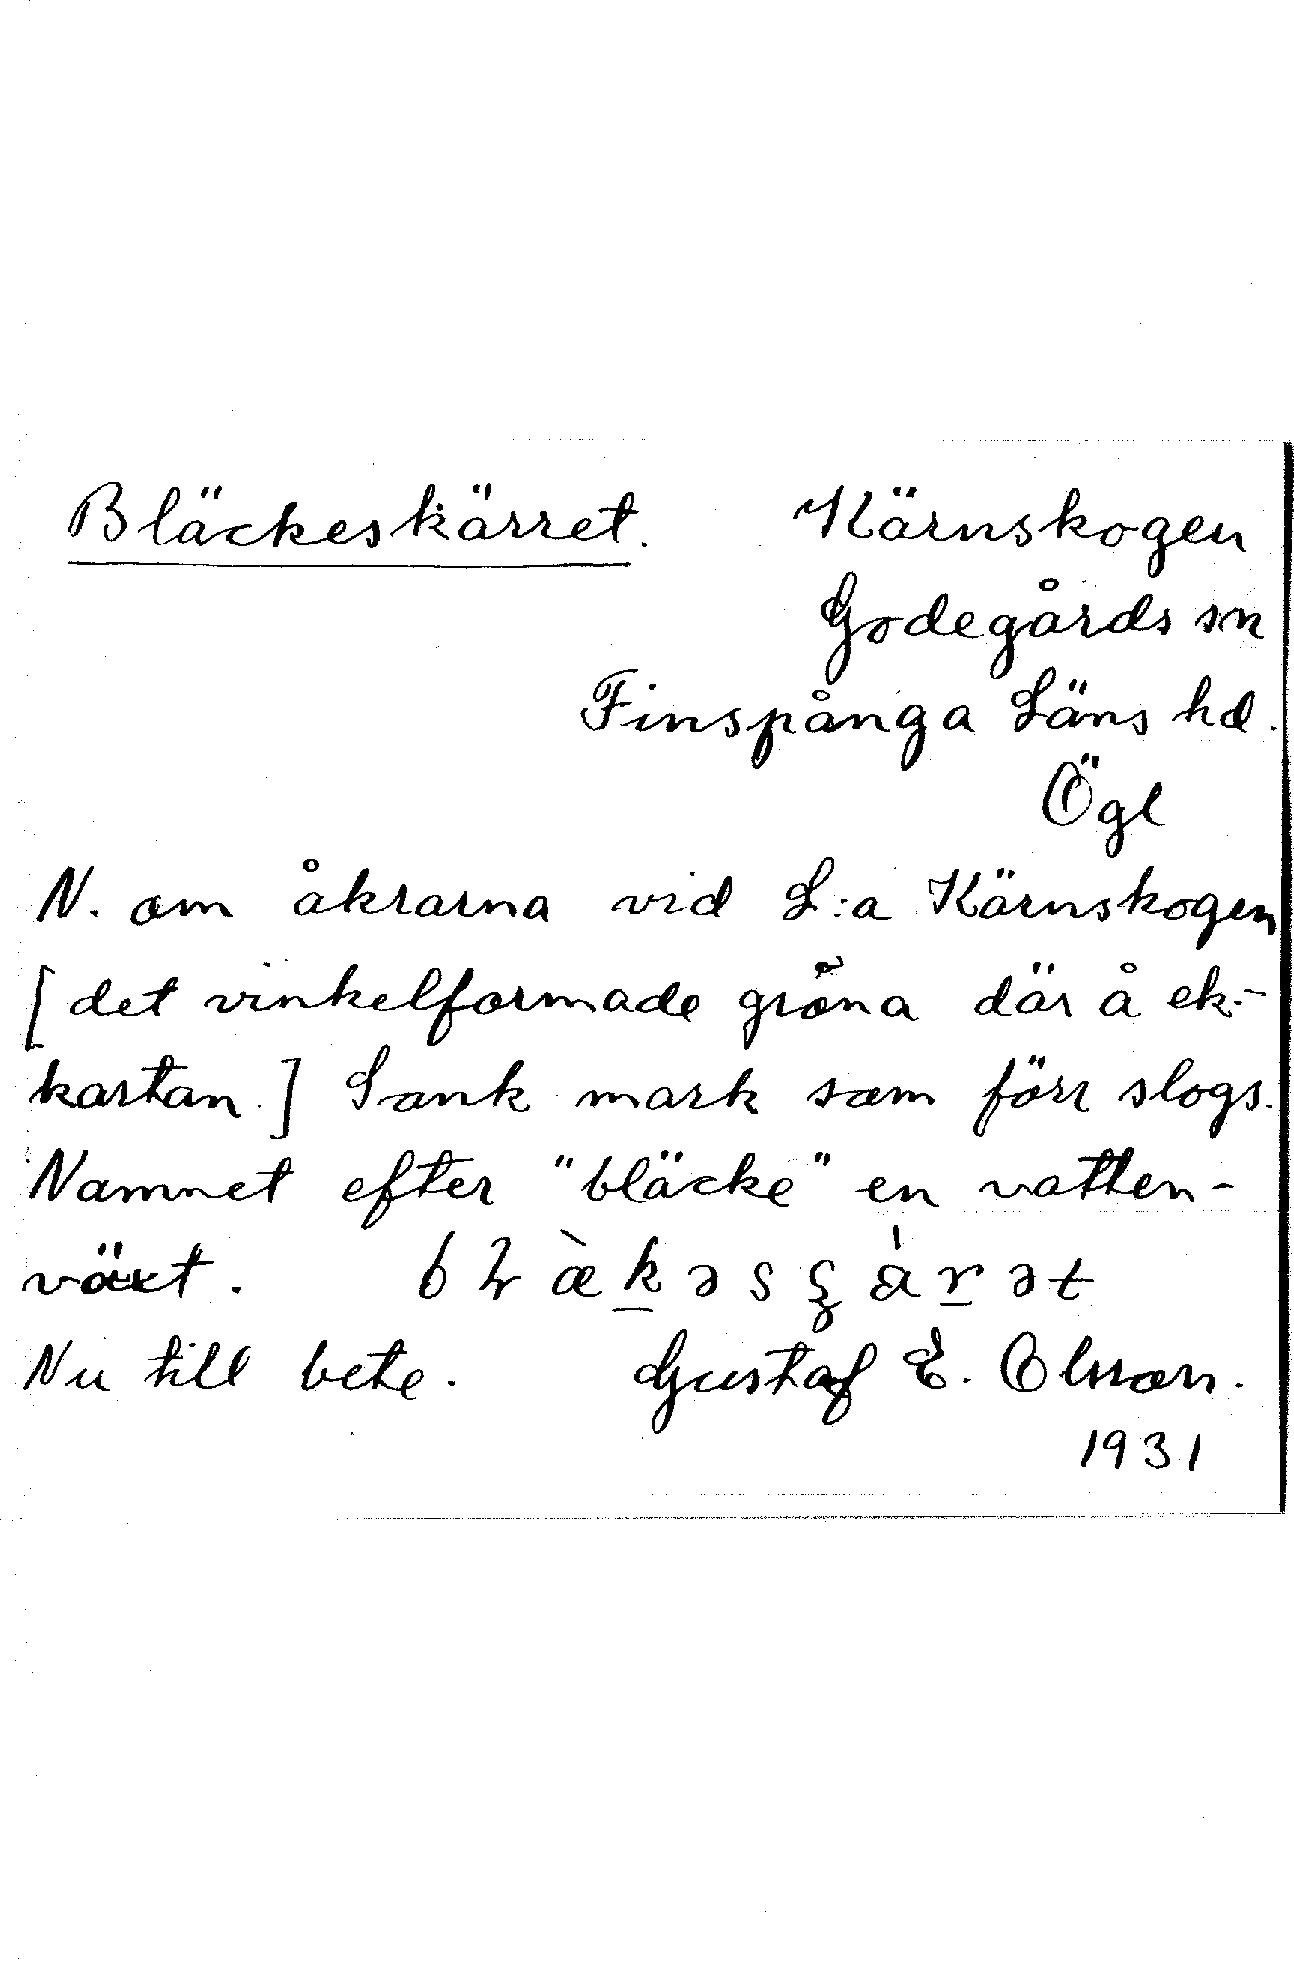 Bläckeskärret. Kärnskogen
Godegårds sn
Finspånga Läns hd.
Ögl
N. om åkrarna vid L:a Kärnskogen
[det vinkelformade gröna där å ek.-
kartan.] Sank mark som förr slogs.
Namnet efter "bläcke" en vatten-
växt.
Nu till bete. Gustaf E. Olsson.
1931